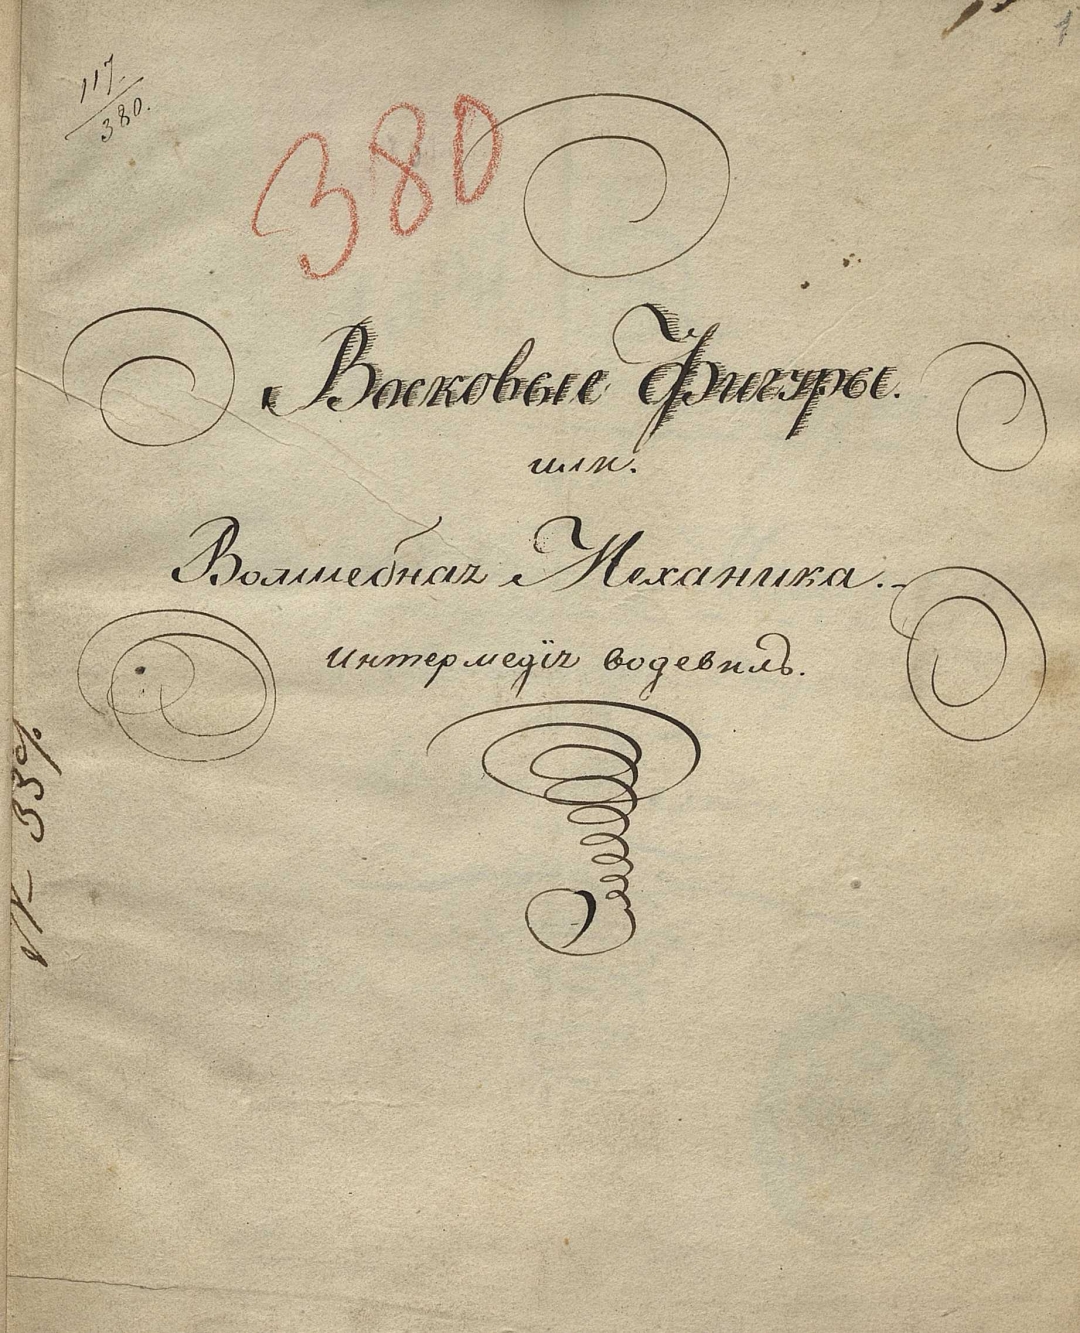 117
380.
380
Восковые Фигуры.
или.
Волшебная Механика.
Интермедія водевиль.